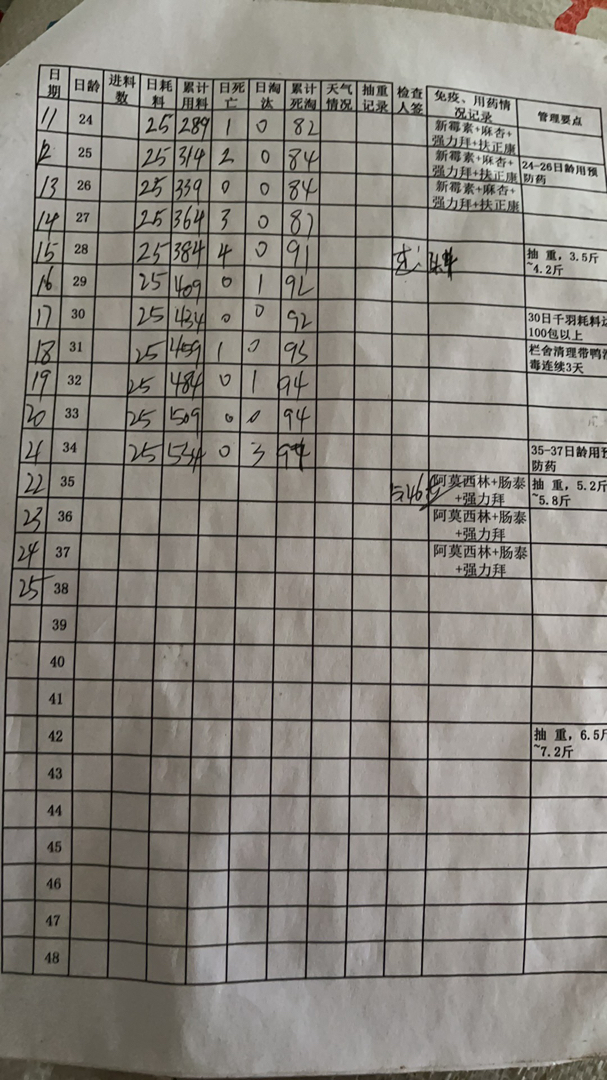 日期 日龄 进料数 日耗料 累计用料 日死亡 日淘汰 累计死淘 天气情况 抽重记录 检查人签 免疫、用药情况记录 管理要点
11 24 25 289 1 0 82 新霉素+麻杏+强力拜+扶正康
12 25 25 314 2 0 84 新霉素+麻杏+强力拜+扶正康 24-26日龄用预防药
13 26 25 339 0 0 84 新霉素+麻杏+强力拜+扶正康
14 27 25 364 3 0 87
15 28 25 384 4 0 91 抽 重，3.5斤~4.2斤
16 29 25 409 0 1 92
17 30 25 434 0 0 92 30日千羽耗料达100包以上
18 31 25 459 1 0 93 栏舍清理带鸭消毒连续3天
19 32 25 484 0 1 94
20 33 25 509 0 0 94
21 34 25 534 0 3 35-37日龄用预防药
22 35 阿莫西林+肠泰+强力拜 抽 重，5.2斤~5.8斤
23 36 阿莫西林+肠泰+强力拜
24 37 阿莫西林+肠泰+强力拜
25 38
39
40
41
42 抽 重，6.5斤~7.2斤
43
44
45
46
47
48